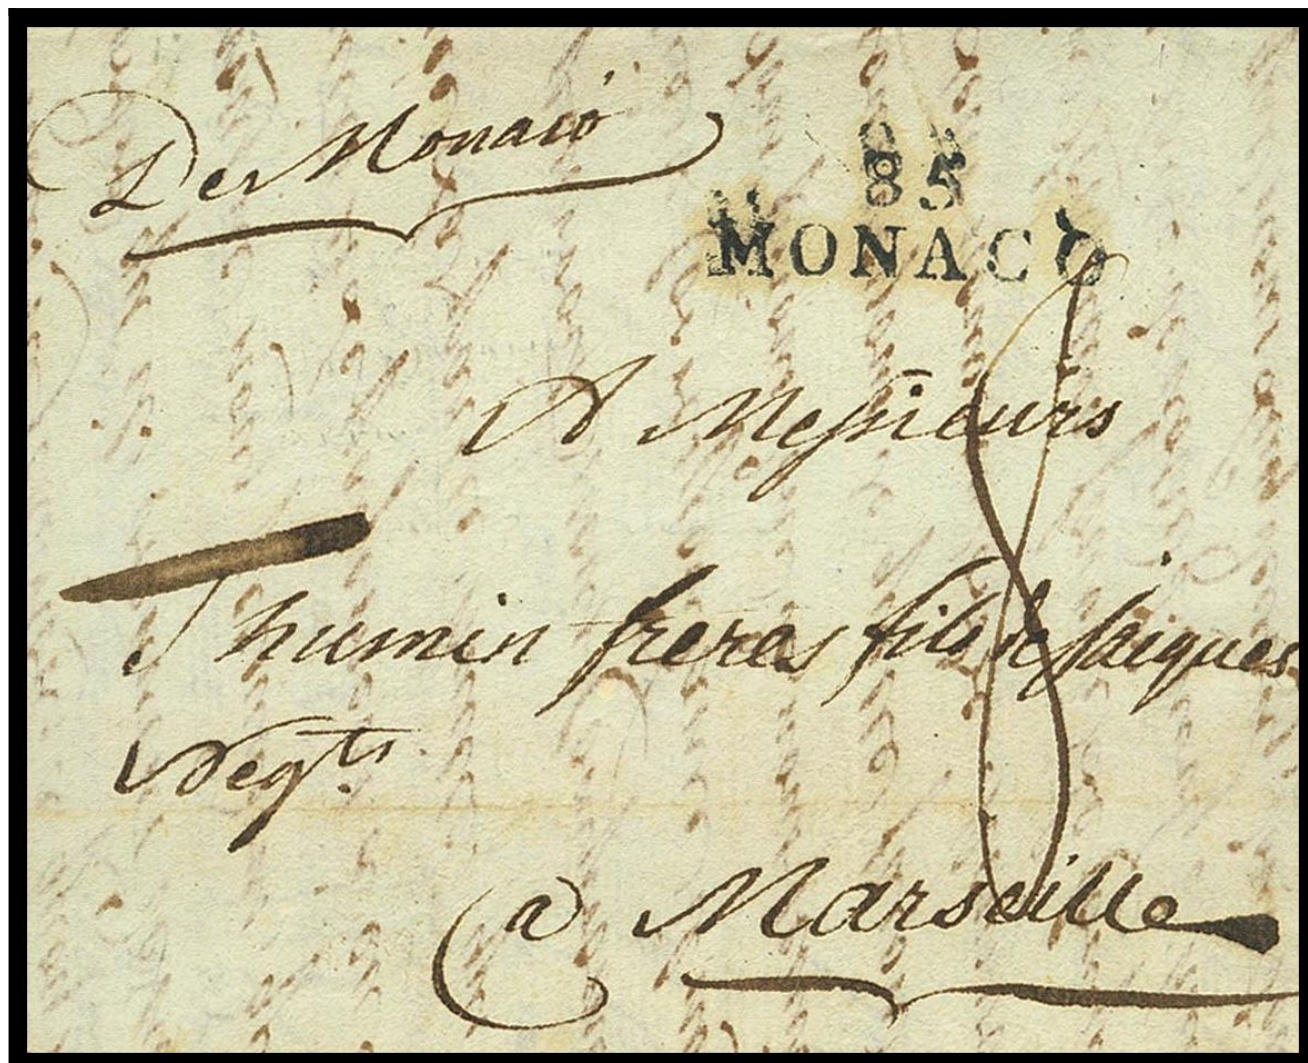 De Monaco
85
MONACO
A Messieurs
Thumin freres fils de Jaiques
Negts.
a Marseille